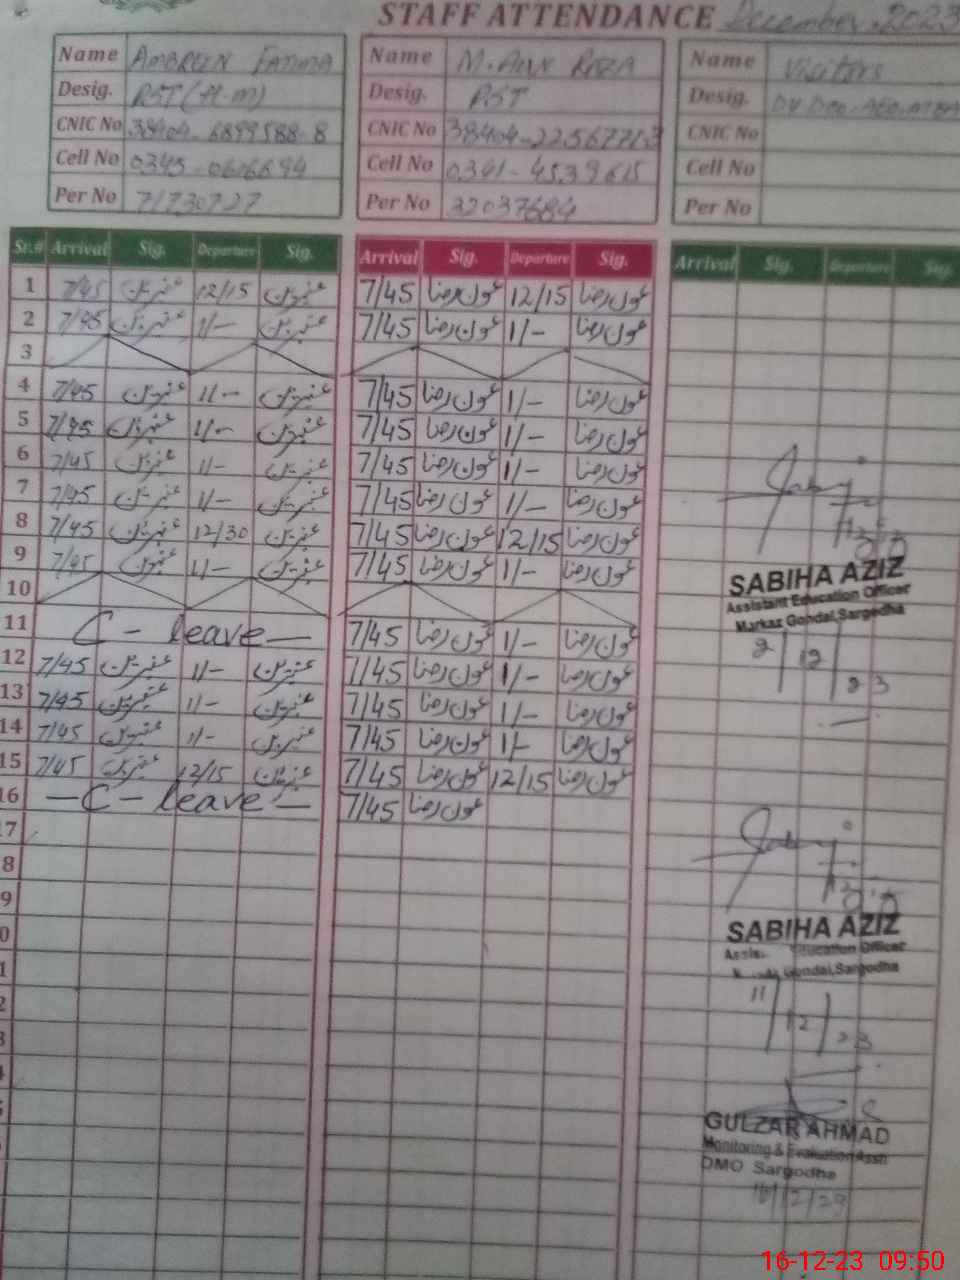 STAFF ATTENDANCE December, 2023
Name AMBREEN FATIMA Name M. Aun RAZA Name Visitors
Desig. PST (H-m) Desig. PST Desig.
CNIC No 38404-6899588-8 CNIC No 38404-2256771-3 CNIC No
Cell No 0345-0616694 Cell No 0341-4539615 Cell No
Per No 71730727 Per No 32037684 Per No
Sr.# Arrival Sig. Departure Sig. Arrival Sig. Departure Sig. Arrival Sig. Departure Sig.
1 7/45 عنبرین 12/15 عنبرین 7/45 عون رضا 12/15 عون رضا
2 7/45 عنبرین 1/- عنبرین 7/45 عون رضا 1/- عون رضا
3
4 7/45 عنبرین 1/- عنبرین 7/45 عون رضا 1/- عون رضا
5 7/45 عنبرین 1/- عنبرین 7/45 عون رضا 1/- عون رضا
6 7/45 عنبرین 1/- عنبرین 7/45 عون رضا 1/- عون رضا
7 7/45 عنبرین 1/- عنبرین 7/45 عون رضا 1/- عون رضا
8 7/45 عنبرین 12/30 عنبرین 7/45 عون رضا 12/15 عون رضا
9 7/45 عنبرین 1/- عنبرین 7/45 عون رضا 1/- عون رضا
10
SABIHA AZIZ
Assistant Education Officer
Markaz Gondal, Sargodha
11 C - leave - 7/45 عون رضا 1/- عون رضا
9/12/23
12 7/45 عنبرین 1/- عنبرین 7/45 عون رضا 1/- عون رضا
13 7/45 عنبرین 1/- عنبرین 7/45 عون رضا 1/- عون رضا
14 7/45 عنبرین 1/- عنبرین 7/45 عون رضا 1/- عون رضا
15 7/45 عنبرین 12/15 عنبرین 7/45 عون رضا 12/15 عون رضا
16 - C - leave - 7/45 عون رضا
17
8
9
0
SABIHA AZIZ
Education Officer
Gondal, Sargodha
1
2
11/12/23
3
4
5
GULZAR AHMAD
Monitoring & Evaluation Assn
DMO Sargodha
16/12/23
16-12-23 09:50